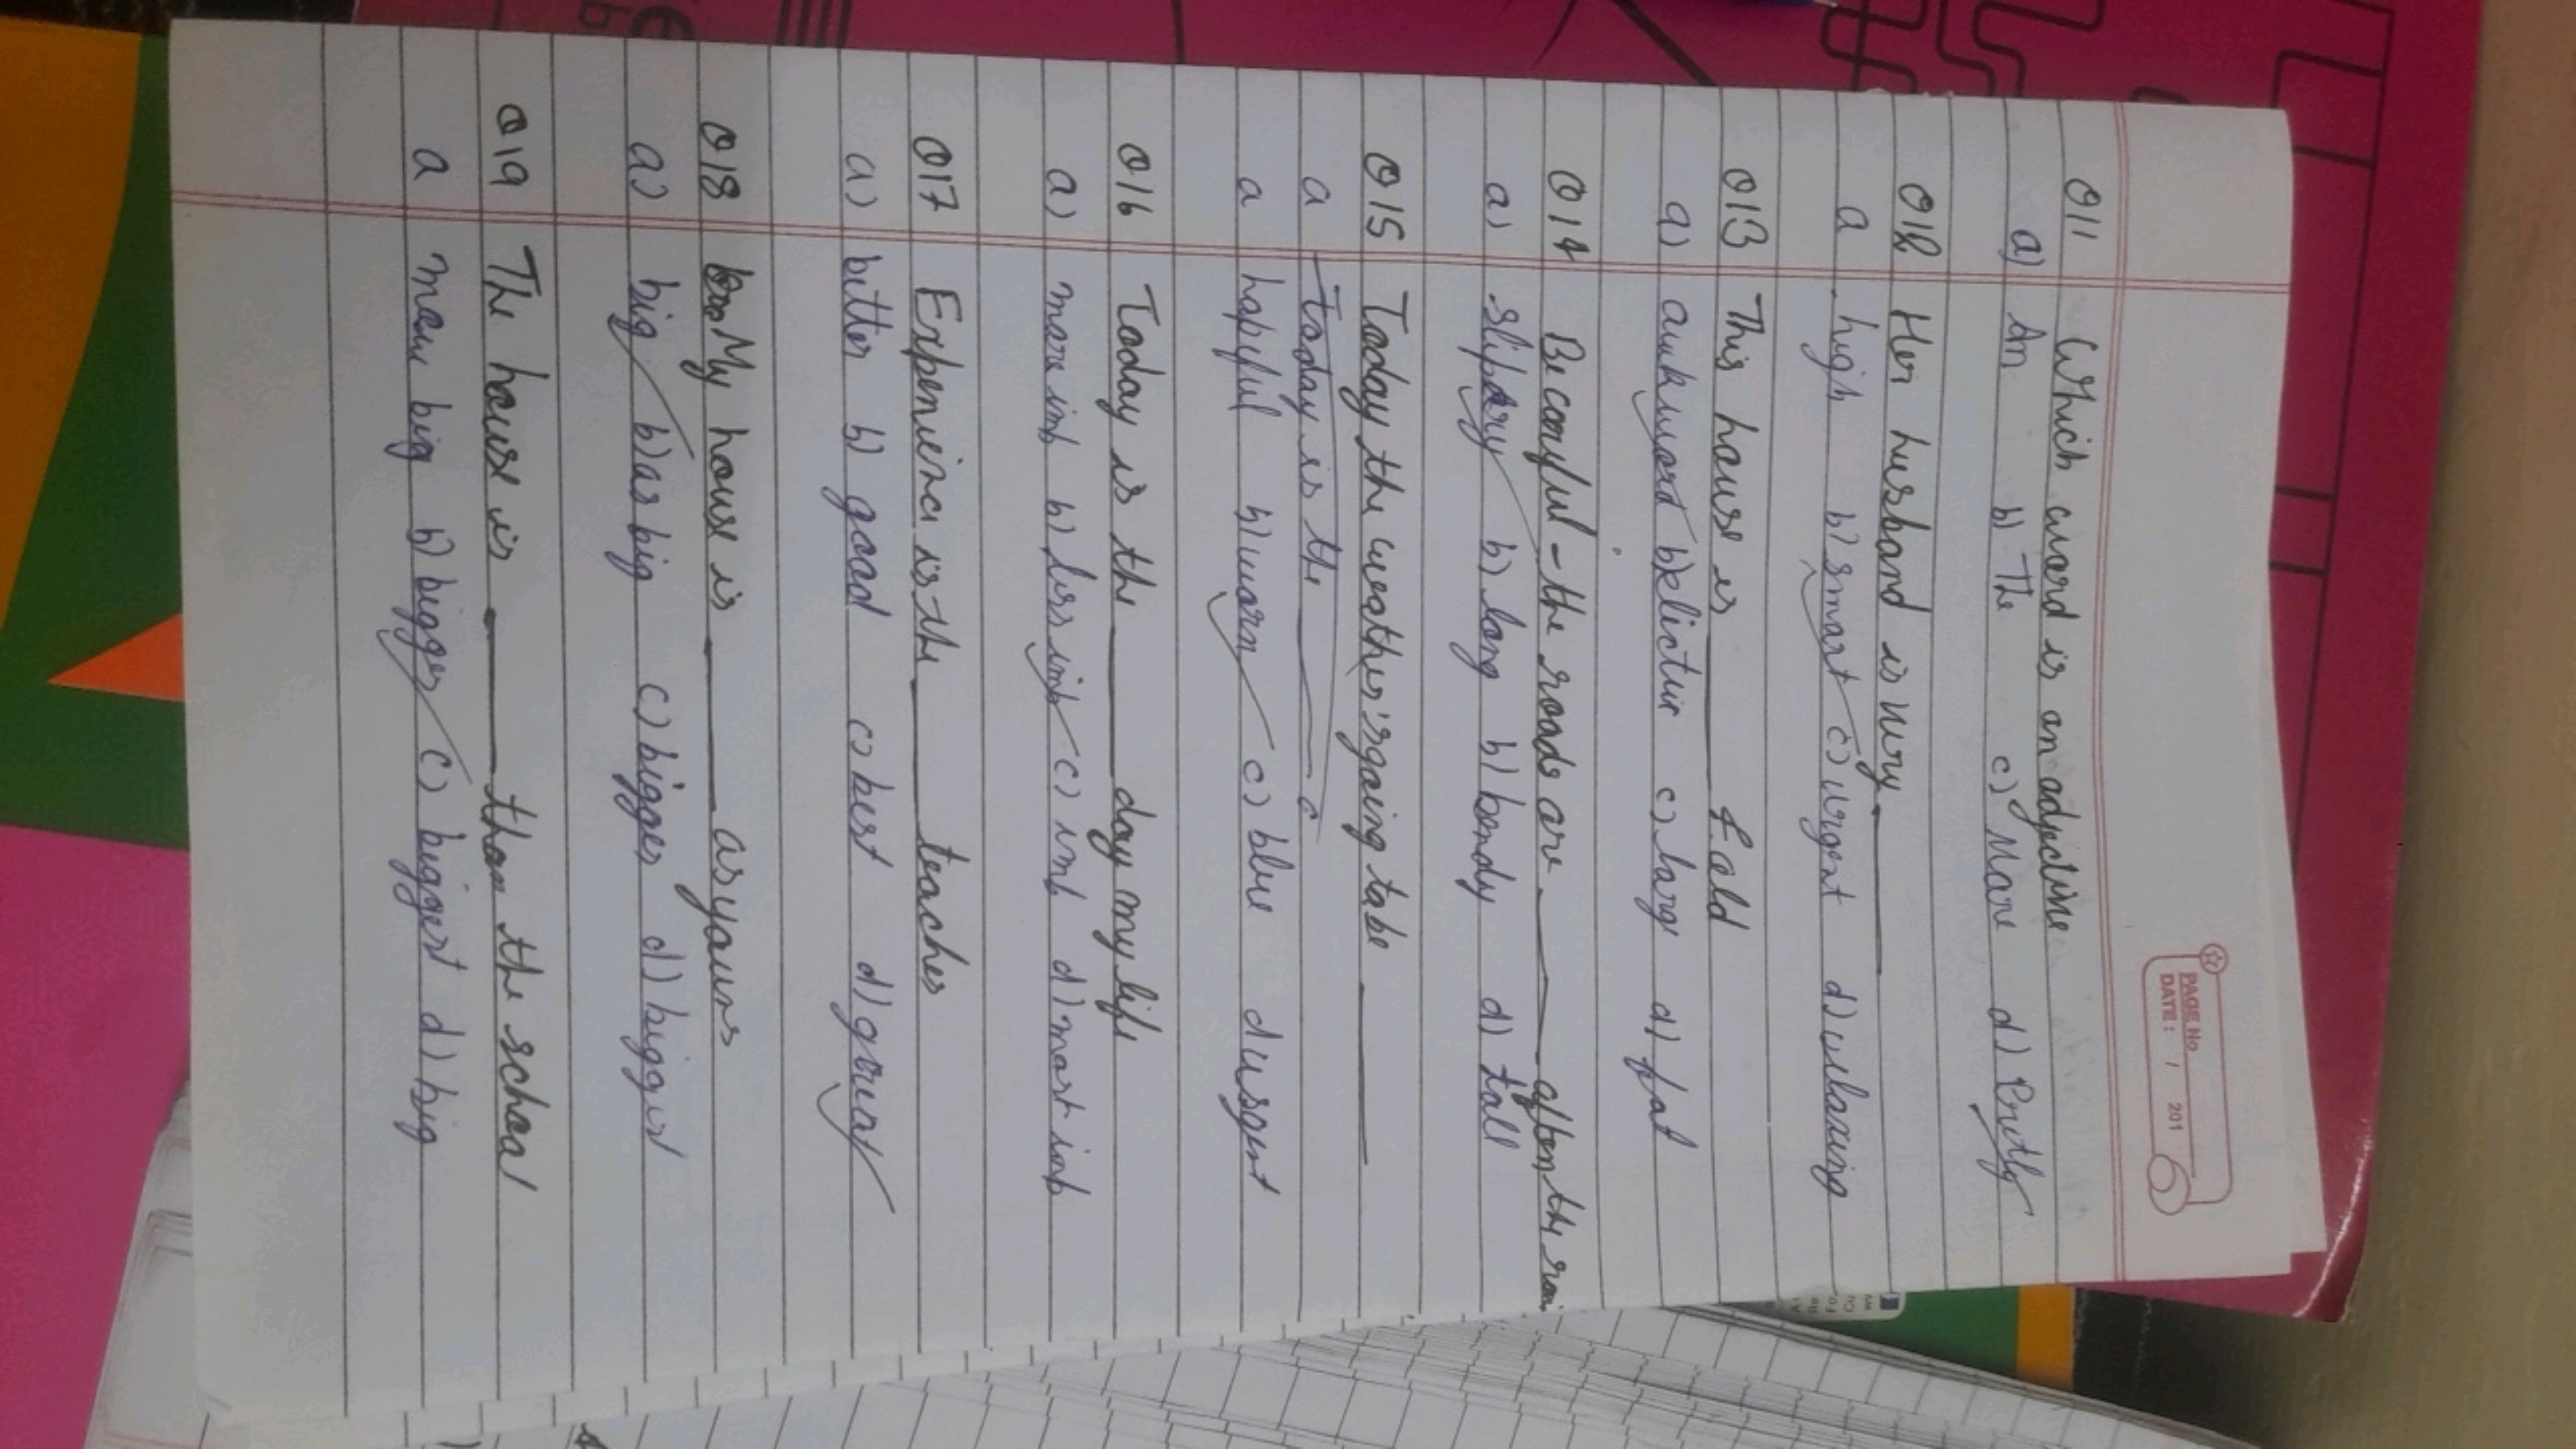 PAGE No
DATE: / / 201
Q11 Which word is an adjective
a) An b) The c) More d) Pretty
Q12 Her husband is very ______
a high b) smart c) urgent d) relaxing
Q13 This house is ______ fold
a) awkward b) elictric c) large d) fat
Q14 Be carful - the roads are ______ after the rain
a) slipery b) long b) bandy d) tall
Q15 Today the weather's going to be ______
a Today is the ______
a hapyful b) warm c) blue d
Q16 Today is the ______ day my life
a) more imp b) less imp c) imp d) most imp
Q17 Experience is the ______ teacher
a) better b) good c) best d) great
Q18 My house is ______ as yours
a) big b) as big c) bigger d) biggest
Q19 The house is ______ than the school
a more big b) bigger c) biggest d) big